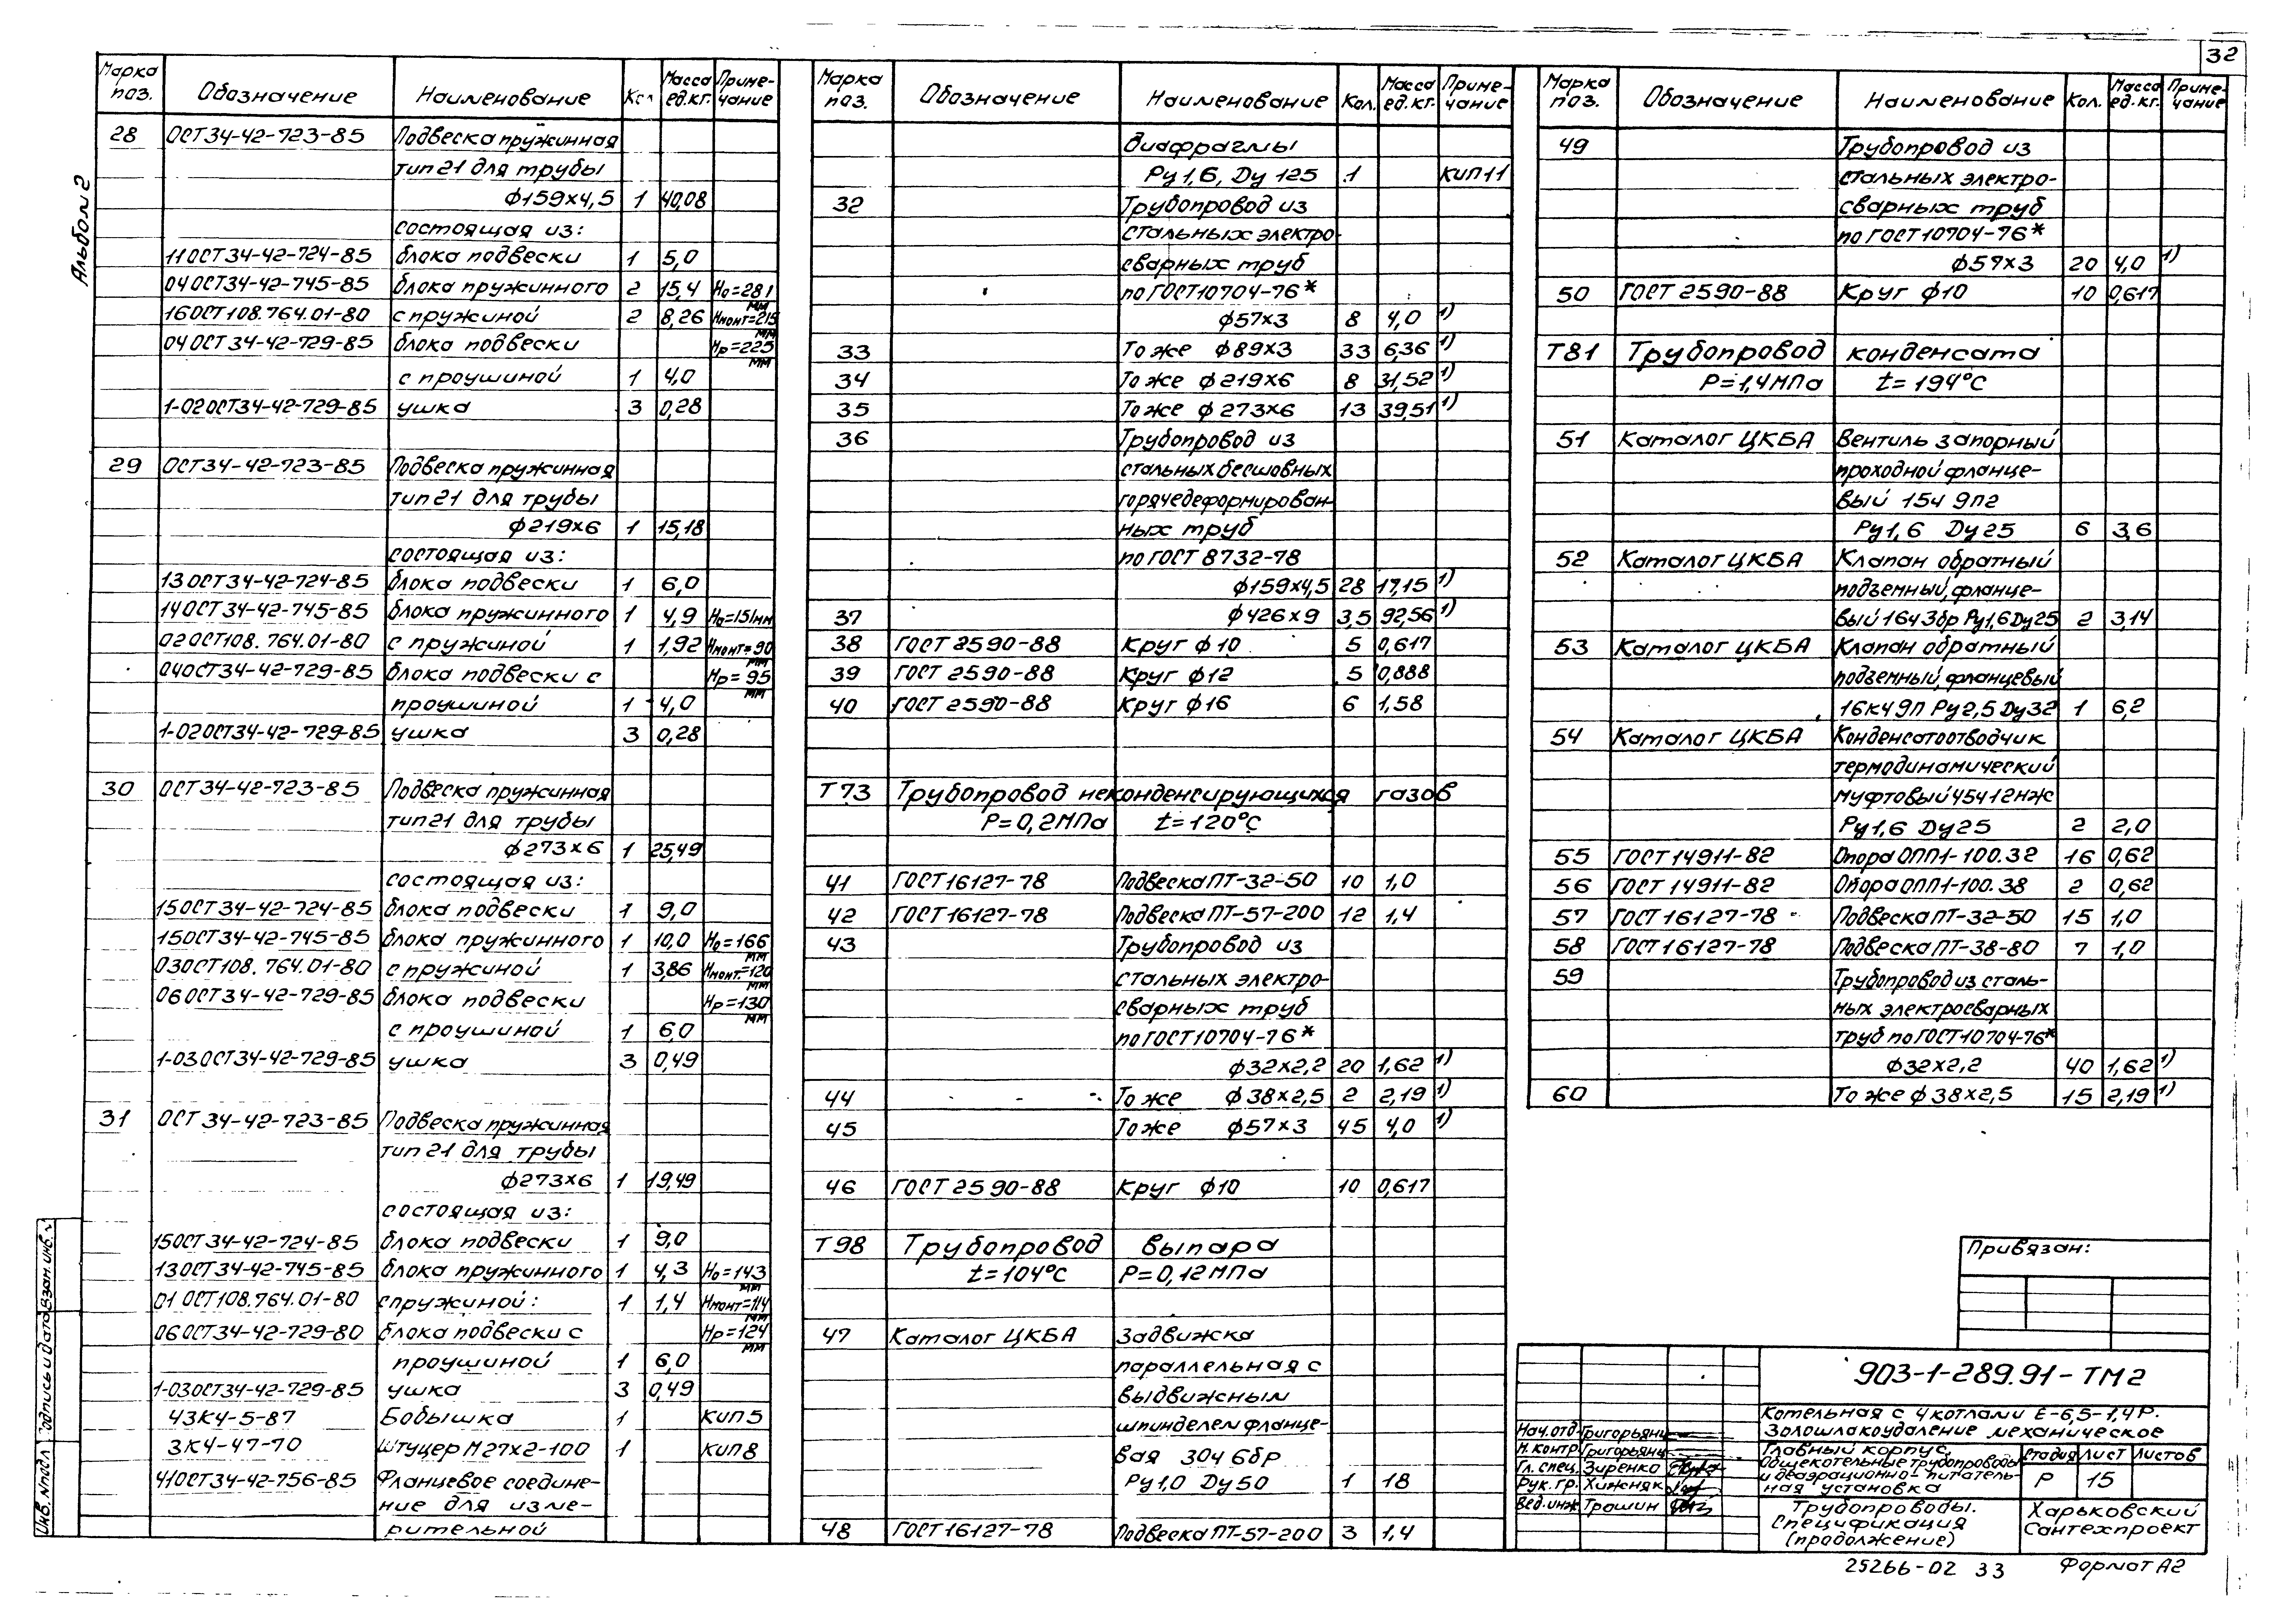 32
Альбом 2
Марка поз. Обозначение Наименование Кол Масса ед.кг. Примечание
28 ОСТ34-42-723-85 Подвеска пружинная
тип 21 для трубы
ф159×4,5 1 40,08
состоящая из:
11ОСТ34-42-724-85 блока подвески 1 5,0
04ОСТ34-42-745-85 блока пружинного 2 15,4 Но=281 мм
16ОСТ108.764.01-80 с пружиной 2 8,26 Нмонт=215 мм
04ОСТ34-42-729-85 блока подвески Нр=225 мм
с проушиной 1 4,0
1-02ОСТ34-42-729-85 ушка 3 0,28
29 ОСТ34-42-723-85 Подвеска пружинная
тип 21 для трубы
ф219×6 1 15,18
состоящая из:
13ОСТ34-42-724-85 блока подвески 1 6,0
14ОСТ34-42-745-85 блока пружинного 1 4,9 Но=151мм
02ОСТ108.764.01-80 с пружиной 1 1,92 Нмонт=90 мм
04ОСТ34-42-729-85 блока подвески с Нр=95 мм
проушиной 1 4,0
1-02ОСТ34-42-729-85 ушка 3 0,28
30 ОСТ34-42-723-85 Подвеска пружинная
тип 21 для трубы
ф273×6 1 25,49
состоящая из:
15ОСТ34-42-724-85 блока подвески 1 9,0
15ОСТ34-42-745-85 блока пружинного 1 10,0 Но=166 мм
03ОСТ108.764.01-80 с пружиной 1 3,86 Нмонт.=120 мм
06ОСТ34-42-729-85 блока подвески Нр=130 мм
с проушиной 1 6,0
1-03ОСТ34-42-729-85 ушка 3 0,49
31 ОСТ 34-42-723-85 Подвеска пружинная
тип 21 для трубы
ф273×6 1 19,49
состоящая из:
15ОСТ34-42-724-85 блока подвески 1 9,0
13ОСТ34-42-745-85 блока пружинного 1 4,3 Но=143 мм
01 ОСТ108.764.01-80 с пружиной: 1 1,4 Нмонт=114 мм
06ОСТ34-42-729-80 блока подвески с Нр=124 мм
проушиной 1 6,0
1-03ОСТ34-42-729-85 ушка 3 0,49
43К4-5-87 Бобышка 1 КИП5
3К4-47-70 Штуцер М27×2-100 1 КИП8
41ОСТ34-42-756-85 Фланцевое соедине-
ние для изме-
рительной
Марка поз. Обозначение Наименование Кол. Масса ед.кг. Примечание
диафрагмы
Ру 1,6, Ду 125 1 КИП11
32 Трубопровод из
стальных электро-
сварных труб
по ГОСТ10704-76*
ф57×3 8 4,0 1)
33 То же ф89×3 33 6,36 1)
34 То же ф219×6 8 31,52 1)
35 То же ф273×6 13 39,51 1)
36 Трубопровод из
стальных бесшовных
горячедеформирован-
ных труб
по ГОСТ 8732-78
ф159×4,5 28 17,15 1)
37 ф426×9 3,5 92,56 1)
38 ГОСТ 2590-88 Круг ф10 5 0,617
39 ГОСТ 2590-88 Круг ф12 5 0,888
40 ГОСТ 2590-88 Круг ф16 6 1,58
Т73 Трубопровод неконденсирующихся газов
Р=0,2МПа t=120°С
41 ГОСТ16127-78 Подвеска ПТ-32-50 10 1,0
42 ГОСТ16127-78 Подвеска ПТ-57-200 12 1,4
43 Трубопровод из
стальных электро-
сварных труб
по ГОСТ10704-76*
ф32×2,2 20 1,62 1)
44 То же ф38×2,5 2 2,19 1)
45 То же ф57×3 45 4,0 1)
46 ГОСТ 2590-88 Круг ф10 10 0,617
Т98 Трубопровод выпара
t=104°С Р=0,12МПа
47 Каталог ЦКБА Задвижка
параллельная с
выдвижным
шпинделем фланце-
вая 30ч 6бр
Ру1,0 Ду50 1 18
48 ГОСТ16127-78 Подвеска ПТ-57-200 3 1,4
Марка поз. Обозначение Наименование Кол. Масса ед.кг. Примечание
49 Трубопровод из
стальных электро-
сварных труб
по ГОСТ10704-76*
ф57×3 20 4,0 1)
50 ГОСТ 2590-88 Круг ф10 10 0,617
Т81 Трубопровод конденсата
Р=1,4МПа t=194°С
51 Каталог ЦКБА Вентиль запорный
проходной фланце-
вый 15ч 9п2
Ру1,6 Ду25 6 3,6
52 Каталог ЦКБА Клапан обратный
подъемный, фланце-
вый 16ч3бр Ру1,6 Ду25 2 3,14
53 Каталог ЦКБА Клапан обратный
подъемный, фланцевый
16кч9п Ру2,5 Ду32 1 6,2
54 Каталог ЦКБА Конденсатоотводчик
термодинамический
муфтовый 45ч12нж
Ру1,6 Ду25 2 2,0
55 ГОСТ14911-82 Опора ОПП1-100.32 16 0,62
56 ГОСТ 14911-82 Опора ОПП1-100.38 2 0,62
57 ГОСТ16127-78 Подвеска ПТ-32-50 15 1,0
58 ГОСТ16127-78 Подвеска ПТ-38-80 7 1,0
59 Трубопровод из сталь-
ных электросварных
труб по ГОСТ10704-76*
ф32×2,2 40 1,62 1)
60 То же ф38×2,5 15 2,19 1)
Привязан:
903-1-289.91-ТМ2
Котельная с 4 котлами Е-6,5-1,4Р.
Золошлакоудаление механическое
Нач.отд. Григорьянц
Н.контр. Григорьянц
Гл.спец. Зиренко
Рук.гр. Хижняк
Вед.инж. Трошин
Главный корпус.
Общекотельные трубопроводы
и деаэрационно-питатель-
ная установка
Стадия Лист Листов
Р 15
Трубопроводы.
Спецификация
(продолжение)
Харьковский
Сантехпроект
25266-02 33 Формат А2
Инв.№подл Подпись и дата Взам.инв.№